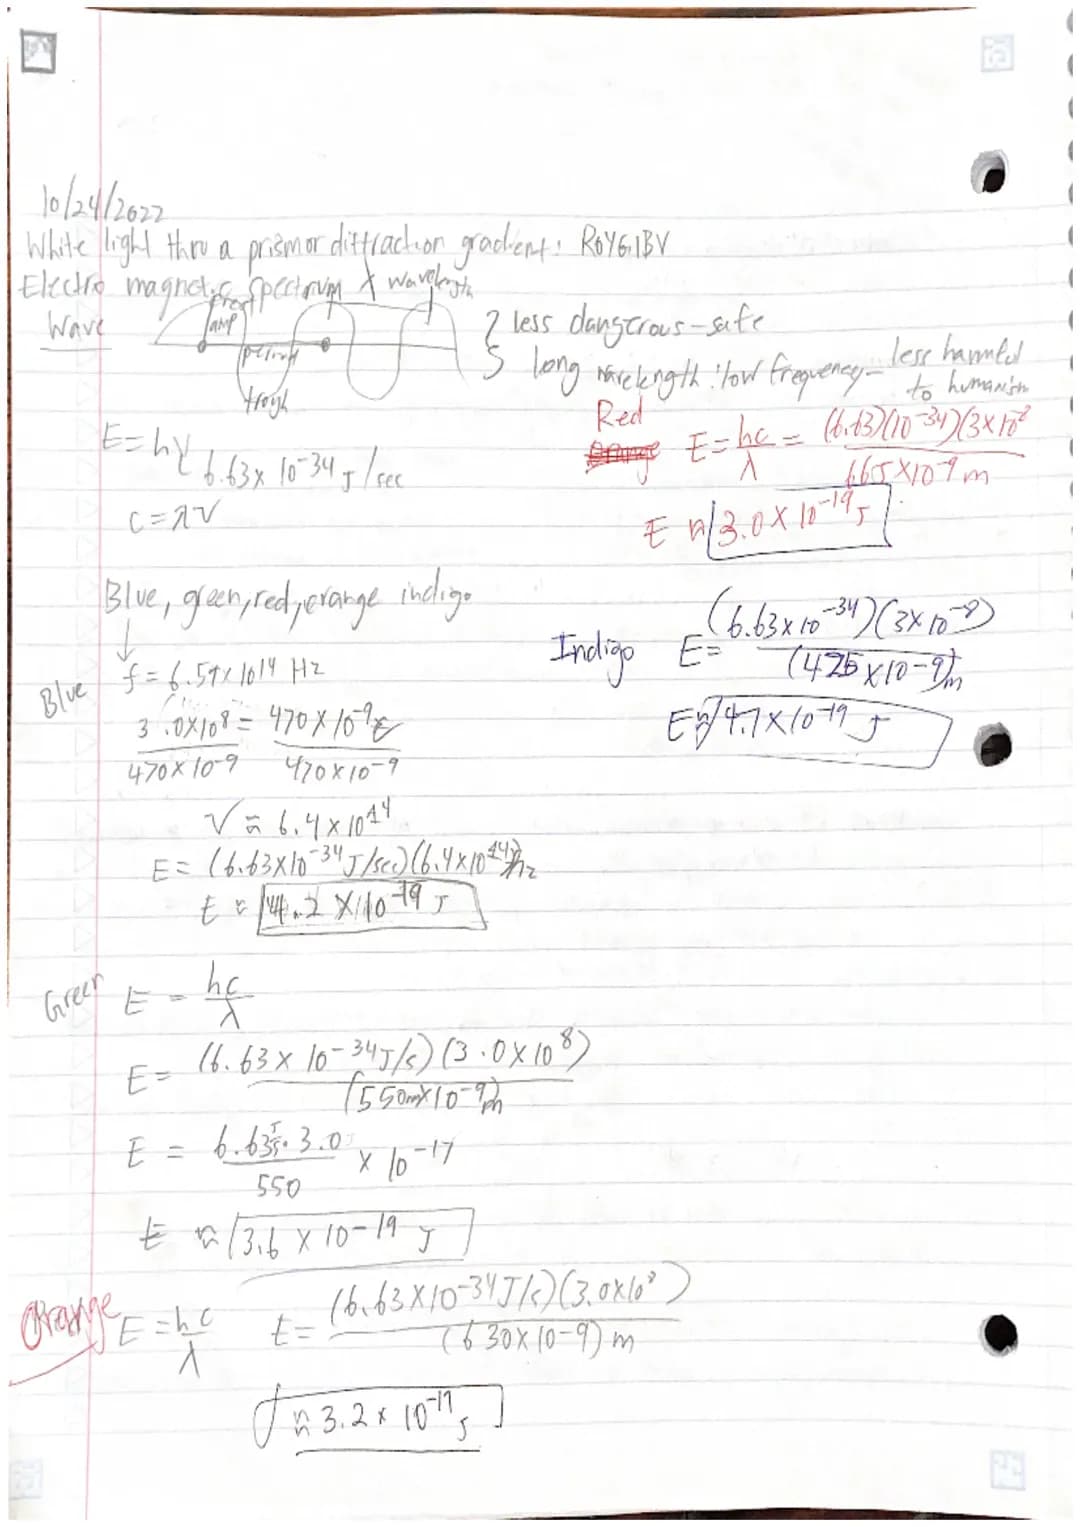 10/24/2022
White light thru a prism or diffraction gradient: ROYGIBV
Electro magnetic spectrum λ wavelength
Wave
crest
amp
period
trough
less dangerous - safe
long wavelength : low frequency - less harmful
to humanish
E=hγ
6.63x 10-34 J/sec
C=λν
Red
Orange
E=hc/λ = (6.63)(10-34)(3x10^8
665x10-9 m
E ≈ 3.0x10-19 J
Blue, green, red, orange indigo
Blue
f = 6.59x1014 Hz
3.0x10^8 = 470x10-9
470x10-9 470x10-9
V ≈ 6.4x10^14
E= (6.63x10-34 J/sec)(6.4x10^14)Hz
E ≈ 4.2 x 10-19 J
Indigo E= (6.63x10-34)(3x10-8)
(425x10-9)m
E≈ 4.7x10-19 J
Green E = hc/λ
E= (6.63x10-34 J/s)(3.0x10^8)
(550mx10-9)m
E = 6.63 J/s · 3.0 x 10-17
550
E ≈ 3.6 x 10-19 J
Orange E=hc/λ
E= (6.63x10-34 J/s)(3.0x10^8)
(630x10-9)m
≈ 3.2 x 10-19 J